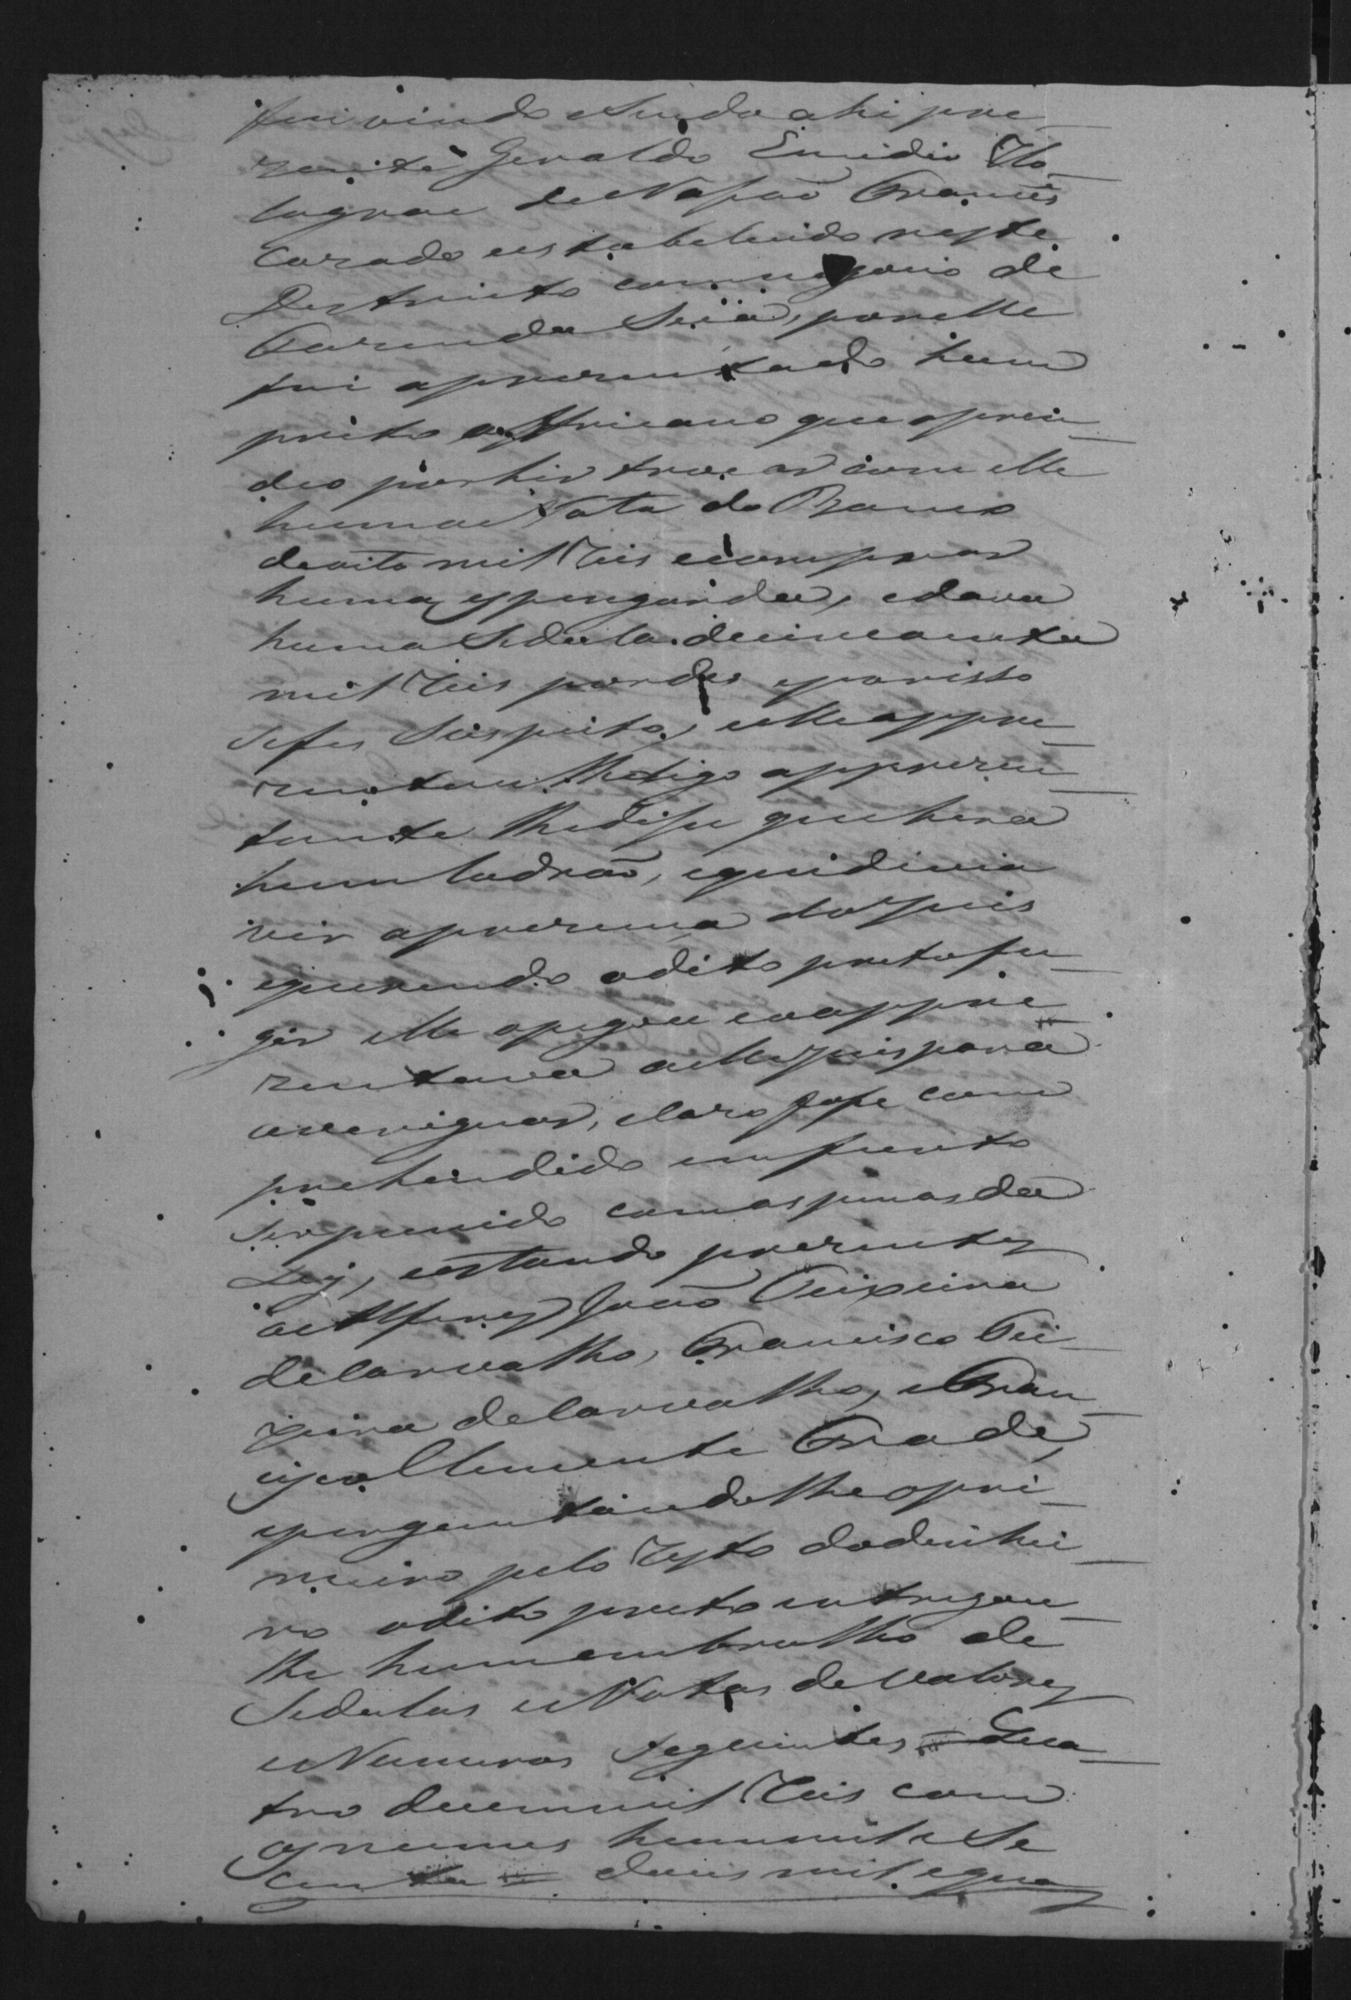 fui vindo e sendo ahi pre-
zente Geraldo Emidio
de Nação Frances
Cazado e estabelecido neste
Destricto com negocio de
Fazenda Seca, por elle
foi aprezentado hum
preto Affricano que apren-
deo por hir trocar com elle
huma Nota do Banco
de oito mil Reis e comprar
huma espingarda, e dava
huma Sedula de cincoenta
mil Reis por des e por isso
se fes Suspeito, e elle appre-
zentou digo apprezen-
tante lhe disse que hera
hum ladrão, e que devia
vir a prezença do Juis
e querendo o dito preto fu-
gir elle o pegou e o appre-
zentava a elle Juis para
averiguar, e cazo fosse com
prehendido em furto
ser punido com as penas da
Ley, e estando prezentes
o Alferes João Teixeira
de Carvalho, Francisco Tei-
xeira de Carvalho, e Fran-
cisco Clemente Frade,
e perguntando lhe o pri-
meiro pelo resto do dinhei-
ro o dito preto entregou-
lhe hum embrulho de
Sedulas e Notas de valores
e Numeros seguintes = Qua-
tro de cem mil Reis com
os numeros hum mil e Se
centa = dous mil e qua